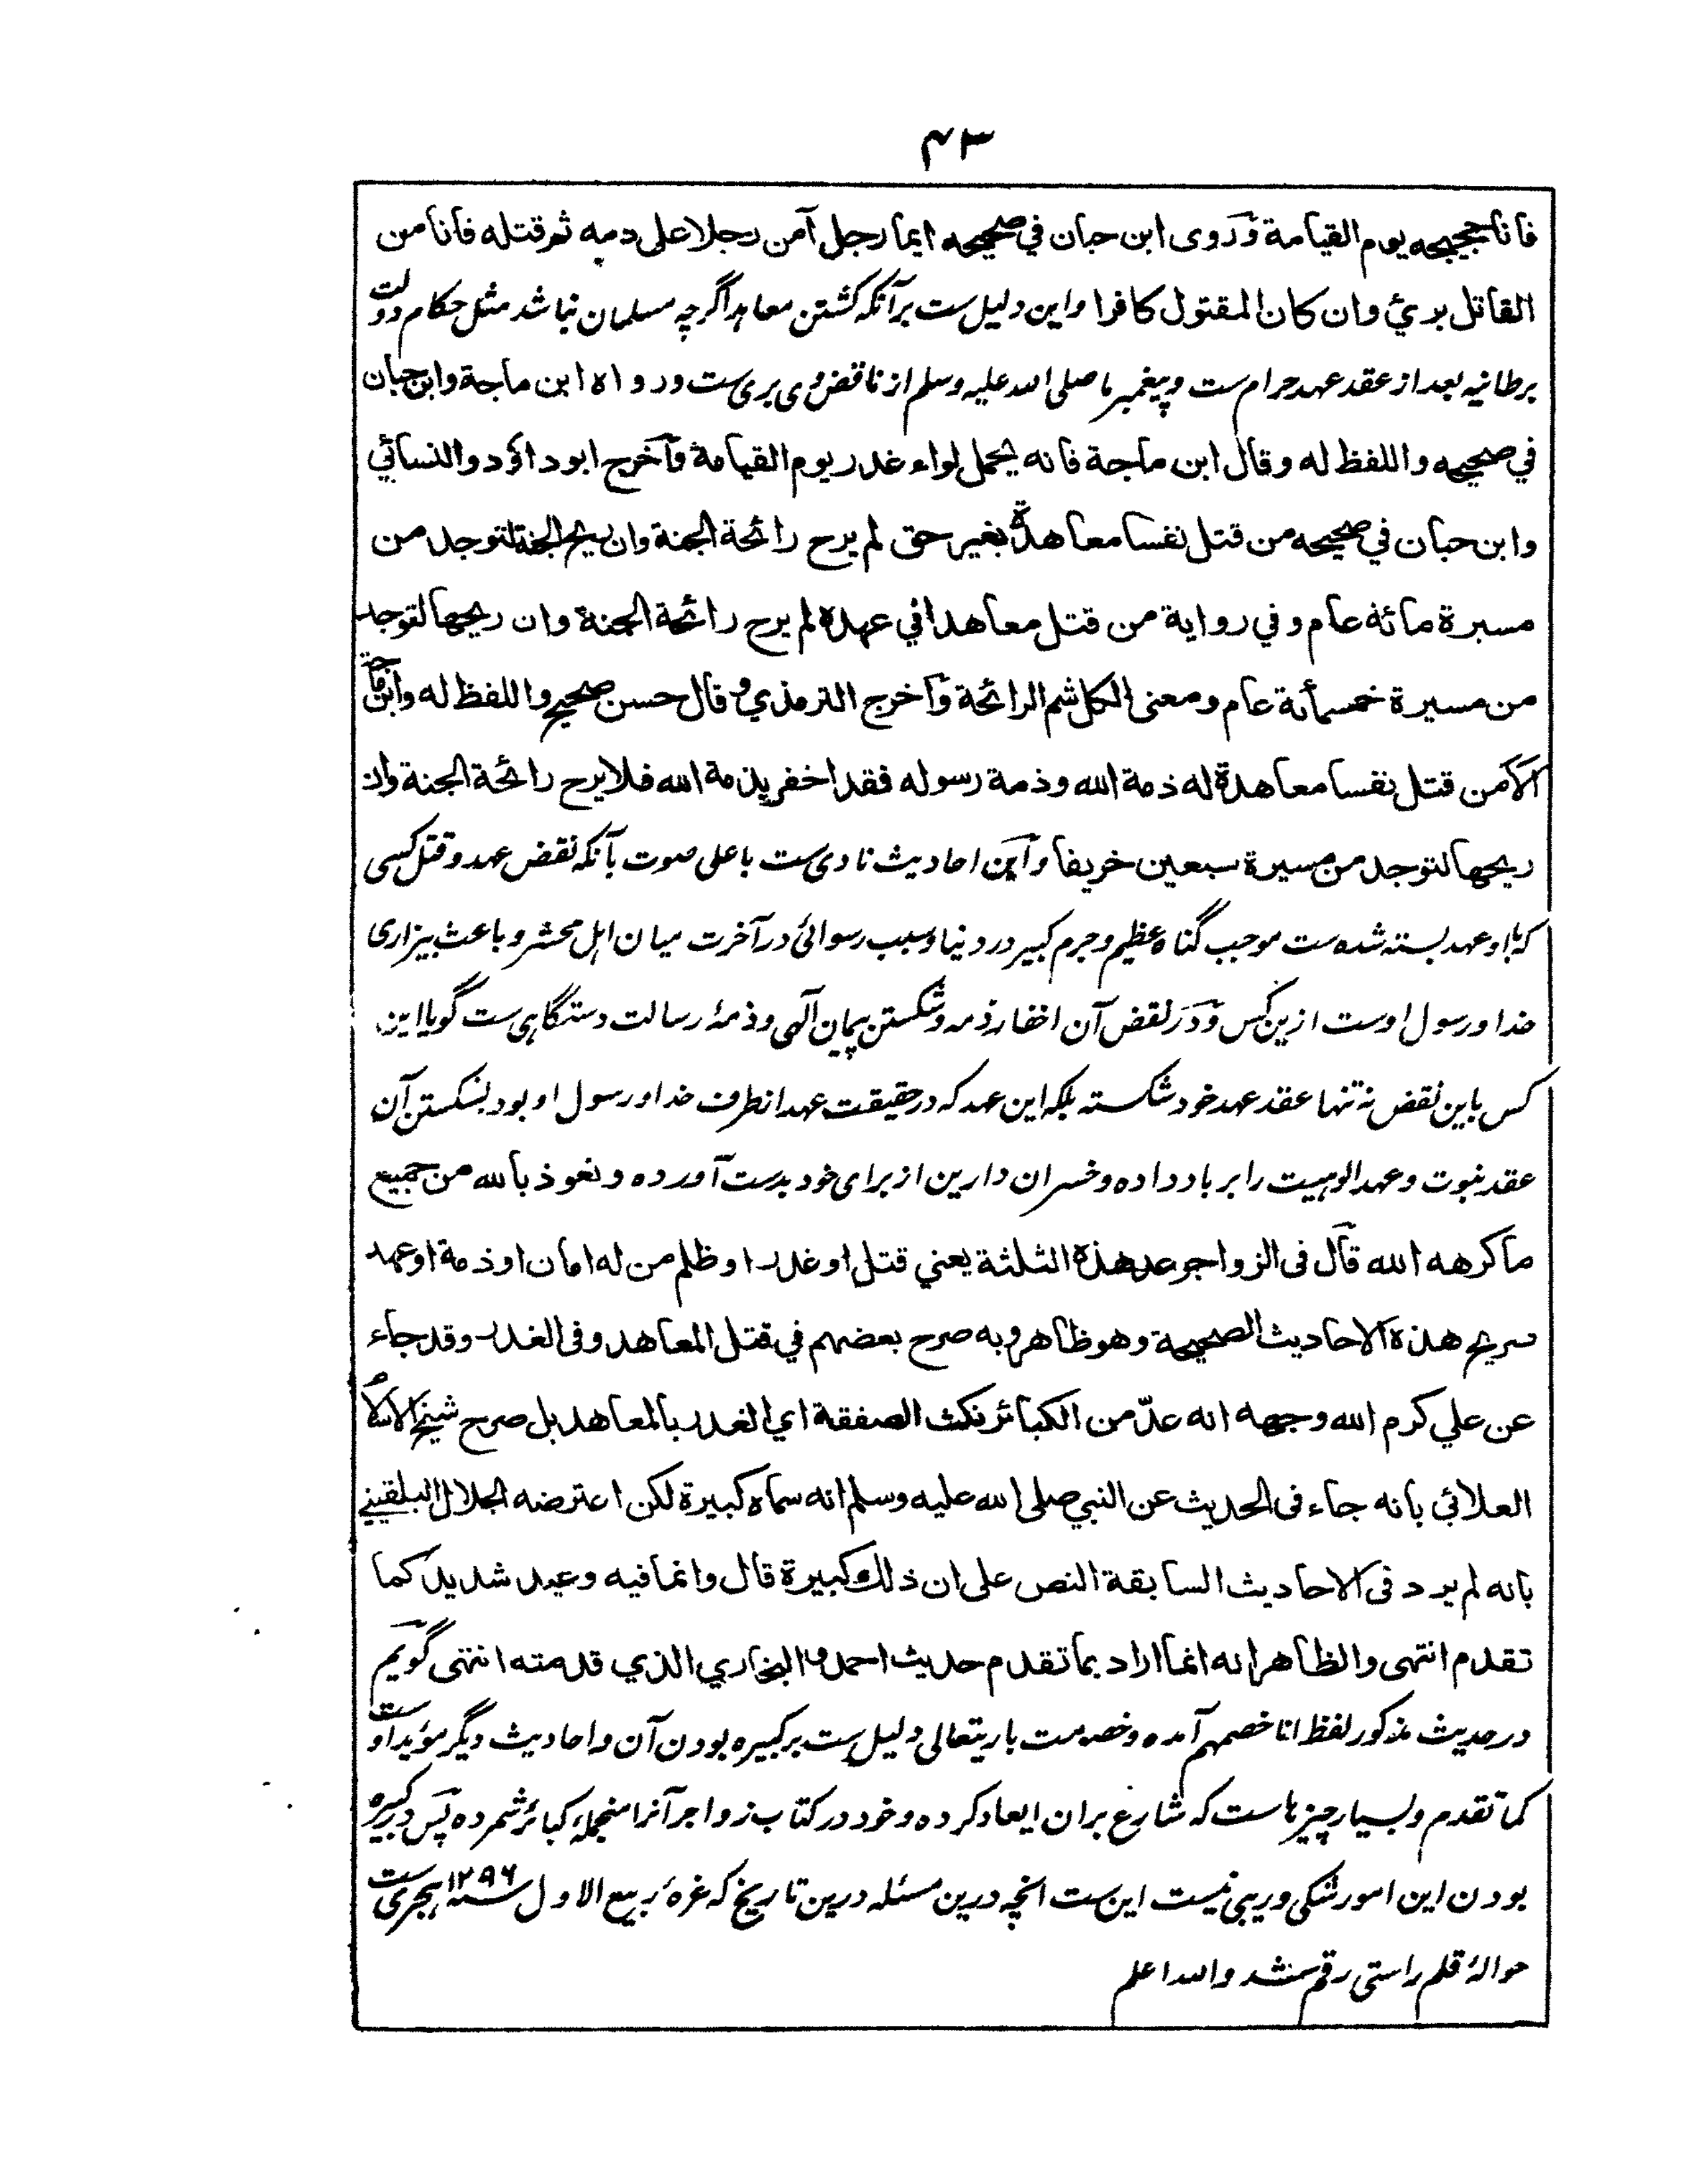 ۴۳
فانا حجيجه يوم القيامة وروى ابن حبان في صحيحه ايما رجل آمن رجلا على دمه ثم قتله فانا من
القاتل بريئ وان كان المقتول كافرا واین دلیل ست برآنکه کشتن معاہد اگرچه مسلمان نباشد مثل حکام دولت
برطانیه بعد از عقد عہد حرام ست وپیغمبر ما صلی الله علیه وسلم از ناقض وی بری ست ورواه ابن ماجة وابن حبان
في صحيحه واللفظ له وقال ابن ماجة فانه يحمل لواء غدر يوم القيامة وآخرج ابو داؤد والنسائي
وابن حبان في صحيحه من قتل نفسا معاهدة بغير حق لم يرح رائحة الجنة وان ريح الجنة لتوجد من
مسيرة مائة عام وفي رواية من قتل معاهدا في عهده لم يرح رائحة الجنة وان ريحها لتوجد
من مسيرة خمسمأئة عام ومعنى الكل شم الرائحة وآخرج الترمذي وقال حسن صحيح واللفظ له وابن ماجة
الا من قتل نفسا معاهدة له ذمة الله وذمة رسوله فقد اخفر بذمة الله فلا يرح رائحة الجنة وان
ريحها لتوجد من مسيرة سبعين خريفا واین احادیث نادی ست باعلی صوت بآنکه نقض عہد وقتل کسی
که با او عہد بسته شده ست موجب گناه عظیم وجرم کبیر در دنیا وسبب رسوائی در آخرت میان اہل محشر وباعث بیزاری
خدا ورسول اوست ازین کس ودر نقض آن اخفار ذمه وشکستن پیمان آلہی وذمۂ رسالت دستگاہی ست گویا این
کس باین نقض نه تنہا عقد عہد خود شکسته بلکه این عہد که در حقیقت عہد از طرف خدا ورسول او بود بشکستن آن
عقد نبوت وعہد الوہیت را بر باد داده وخسران دارین از برای خود بدست آورده ونعوذ بالله من جميع
ما كرهه الله قال فى الزواجر عد هذه الثلثة يعني قتل او غدر او ظلم من له امان او ذمة او عهد
صريح هذه الاحاديث الصحيحة وهو ظاهر وبه صرح بعضهم في قتل المعاهد وفى الغدر وقد جاء
عن علي كرم الله وجهه انه عدّ من الكبائر نكث الصفقة اي الغدر بالمعاهد بل صرح شيخ الاسلام
العلائي بانه جاء فى الحديث عن النبي صلى الله عليه وسلم انه سماه كبيرة لكن اعترضه الجلال البلقيني
بانه لم يرد فى الاحاديث السابقة النص على ان ذلك كبيرة قال وانما فيه وعيد شديد كما
تقدم انتهى والظاهر انه انما اراد بما تقدم حديث احمد والبخاري الذي قدمته انتهى گویم
در حدیث مذکور لفظ انا خصمہم آمده وخصومت باریتعالی دلیل ست بر کبیره بودن آن واحادیث دیگر مؤید اوست
کما تقدم وبسیار چیزہاست که شارع بران ایعاد کرده وخود در کتاب زواجر آنرا منجملۂ کبائر شمرده پس در کبیره
بودن این امور شکی وریبی نیست این ست انچه درین مسئله درین تاریخ که غرۂ ربیع الاول سنه ۱۲۹۶ ہجری ست
حوالۂ قلم راستی رقم شد والله اعلم